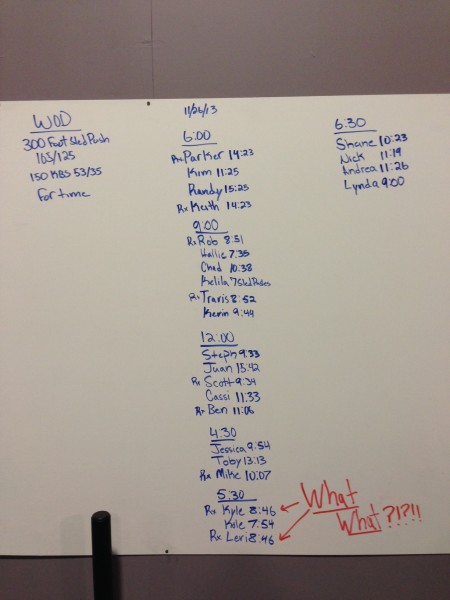 WOD
300 Foot Sled Push
165/125
150 KBS 53/35
For time
11/26/13
6:00
Rx Parker 14:23
Kim 11:25
Randy 15:25
Rx Keith 14:23
9:00
Rx Rob 8:51
Hallie 7:35
Chad 10:38
Kelila 7 Sled Rides
Rx Travis 8:52
Kevin 9:44
12:00
Steph 9:33
Juan 15:42
Rx Scott 9:34
Cassi 11:33
Rx Ben 11:06
4:30
Jessica 9:54
Toby 13:13
Rx Mike 10:07
5:30
Rx Kyle 8:46
Kile 7:54
Rx Lexi 8:46
6:30
Shane 10:23
Nick 11:19
Andrea 11:26
Lynda 9:00
What
What?!?!!